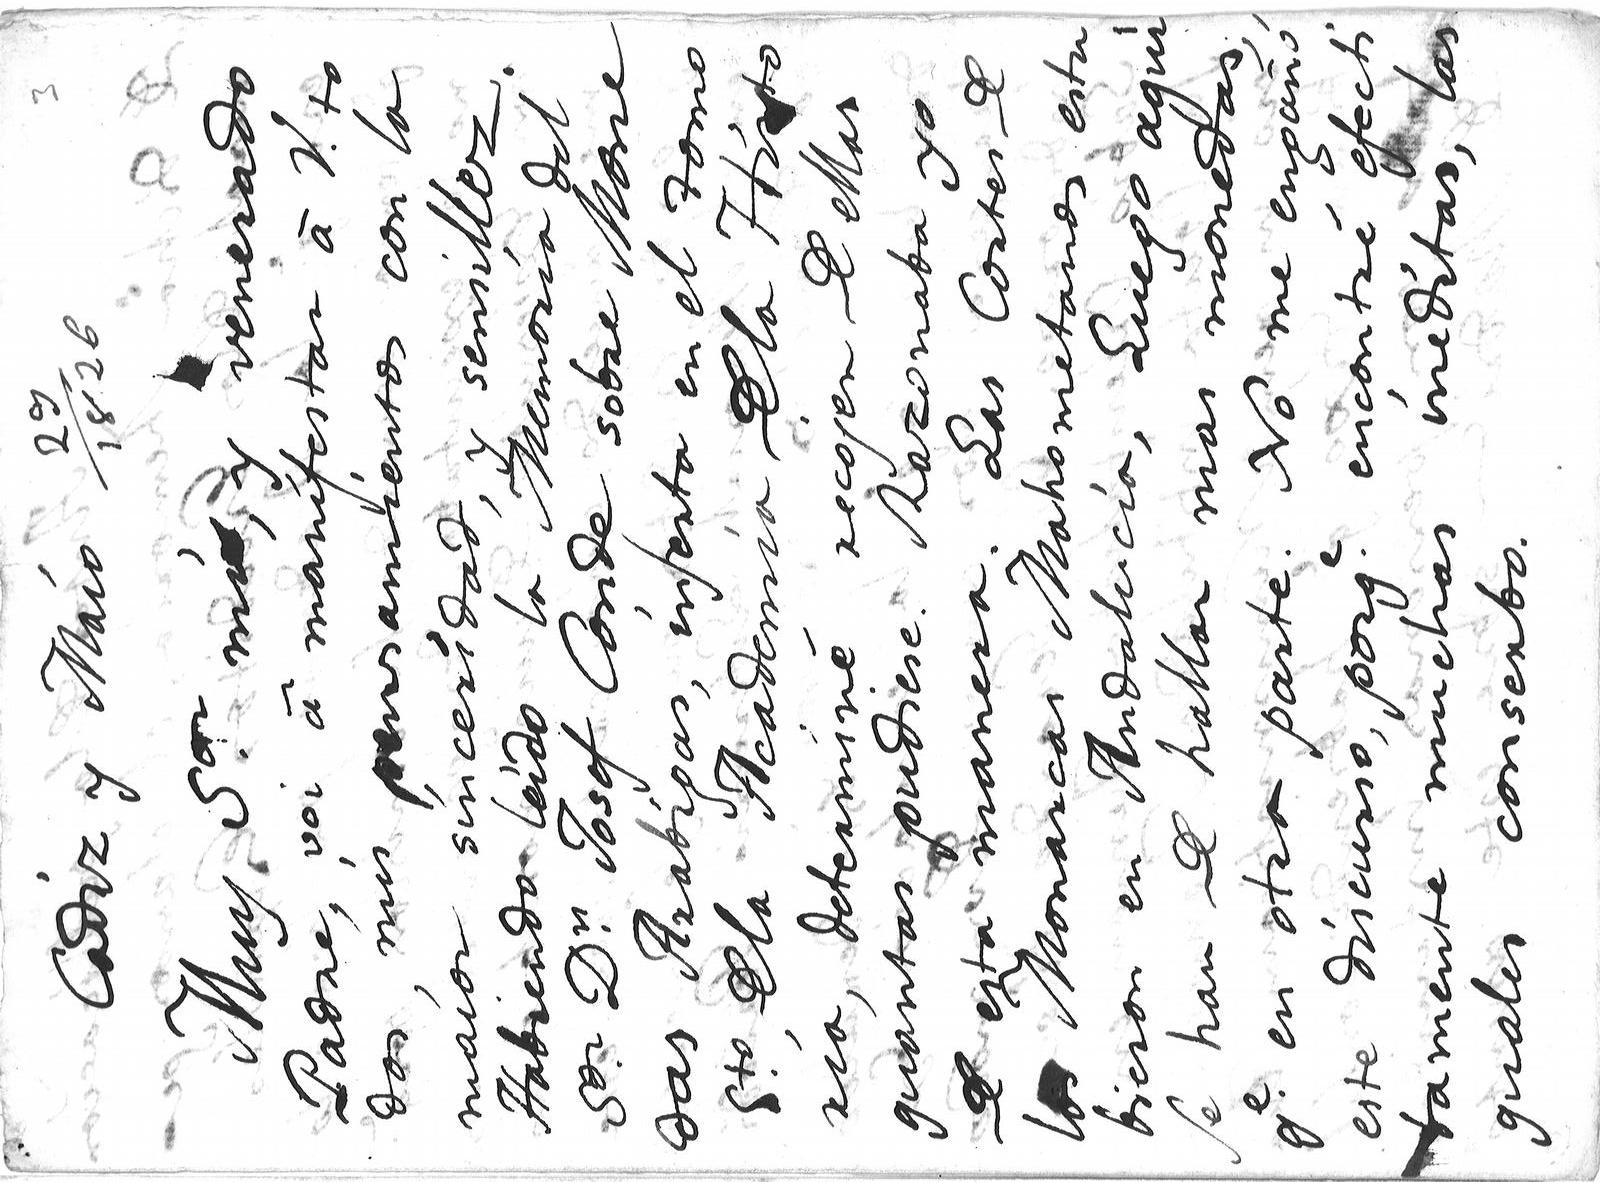 3
Cadiz y Maio 29/1826
Muy Sor. mio, y venerado
Padre, voi ā manifestar ā V. to
dos mis pensamientos con la
maior sinceridad, y sensillez.
Habiendo leido la Memoria del
Sor. Dn. Josef Conde sobre Mone
das Arabigas, inserta en el tomo
5to. de la Academia de la Histo
ria, determiné recoger de ellas
quantas pudiese. Razonaba yo
de esta manera. Las Cortes de
los Monarcas Mahometanos estu
bieron en Andalucia, Luego aqui
se han de hallar mas monedas,
qe. en otra parte. No me engañó
este discurso, porqe. encontré efecti
bamente muchas ineditas, las
quales conserbo.